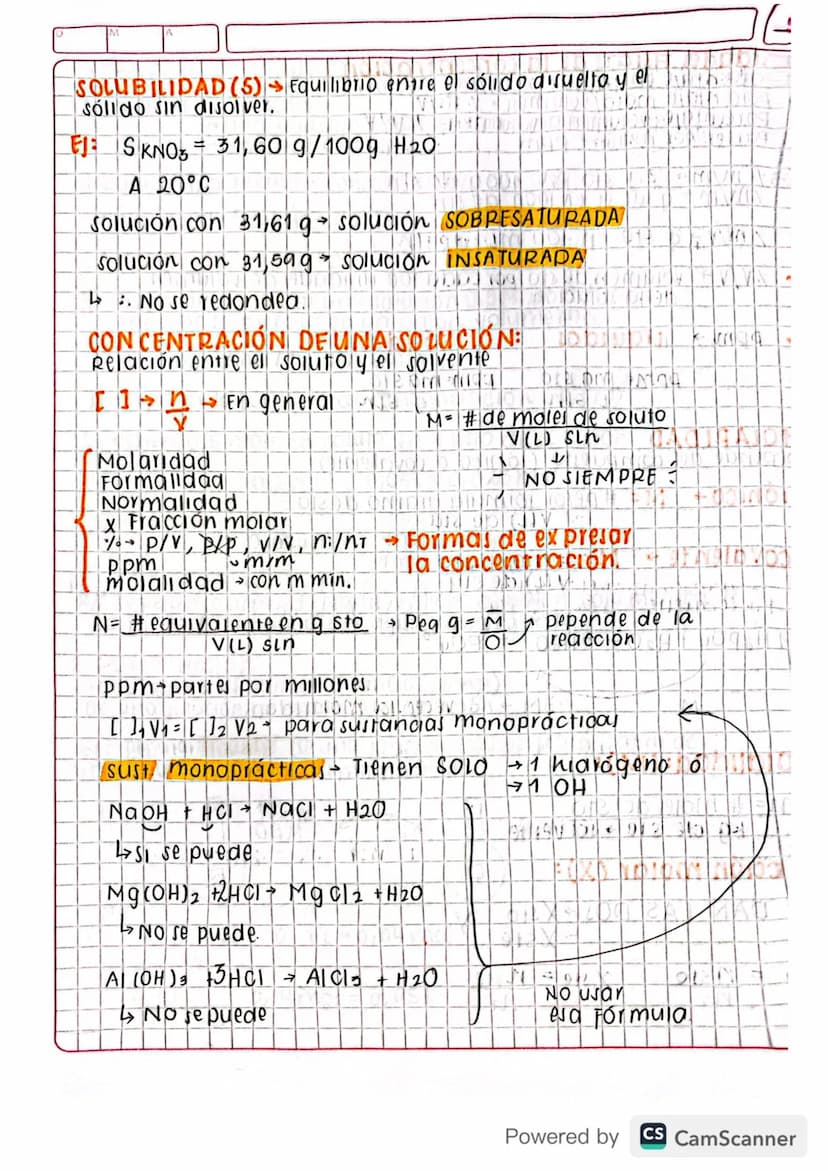 D M A
SOLUBILIDAD (S) → Equilibrio entre el sólido disuelto y el
sólido sin disolver.
Ej: S KNO3 = 31,60 g/100g H2O
A 20°C
solución con 31,61 g → solución SOBRESATURADA
solución con 31,59 g → solución INSATURADA
↳ ∴ No se redondea.
CONCENTRACIÓN DE UNA SOLUCIÓN:
Relación entre el soluto y el solvente
[ ] → n/V → En general
M = # de moles de soluto
V(L) sln
↓
NO SIEMPRE
Molaridad
Formalidad
Normalidad
X Fracción molar
% → P/V, P/P, V/V, ni/nT → Formas de expresar
ppm → m/m la concentración.
molalidad → con m min.
N = # equivalente en g sto → Peq g = M ↗ Depende de la
V(L) sln O reacción
ppm → partes por millones
[ ]1 V1 = [ ]2 V2 → para sustancias monoprácticas
sust/ monoprácticas → Tienen SOLO → 1 hidrógeno ó
→ 1 OH
NaOH + HCl → NaCl + H2O
↳ Si se puede
Mg(OH)2 +2HCl → MgCl2 + H2O
↳ No se puede.
Al(OH)3 +3HCl → AlCl3 + H2O
↳ No se puede
No usar
esa fórmula
Powered by CS CamScanner